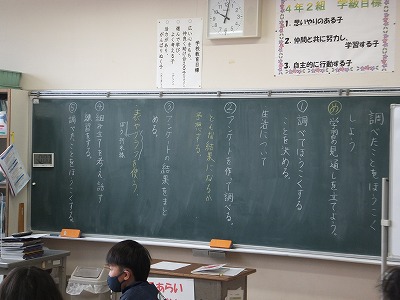 ４年２組 学級目標
1. 思いやりのある子
2. 仲間と共に努力し、
学習する子
3. 自主的に行動する子
学校教育目標
調べたことをほうこく
しよう
め 学習の見通しを立てよう。
① 調べてほうこくする
ことを決める。
生活について
② アンケートを作って調べる。
どんな結果になるか
予想する
③ アンケートの結果をまと
める。
表やグラフを使う。
④ 組み立てを考え、話す
練習をする。
⑤ 調べたことをほうこくする。